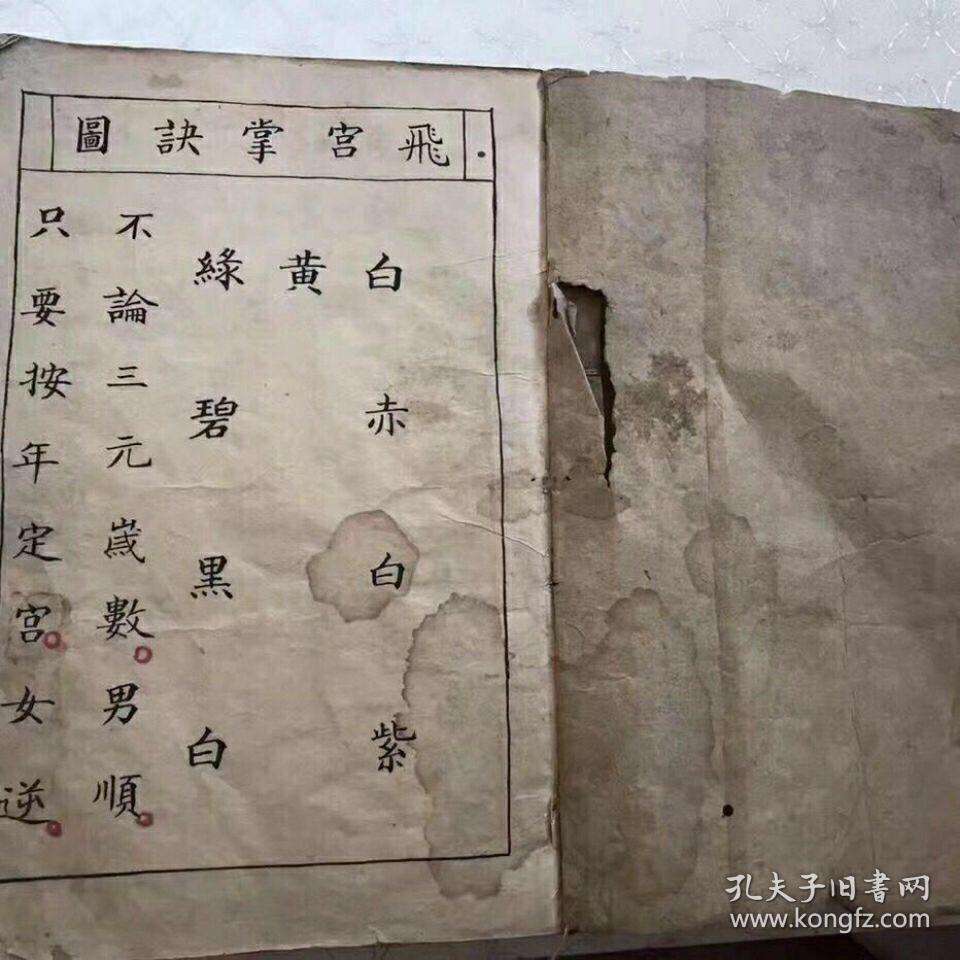 飛宮掌訣圖
白赤白紫
黃
綠碧黑白
不論三元歲數。男順。
只要按年定宮。女逆。
孔夫子旧書网
www.kongfz.com